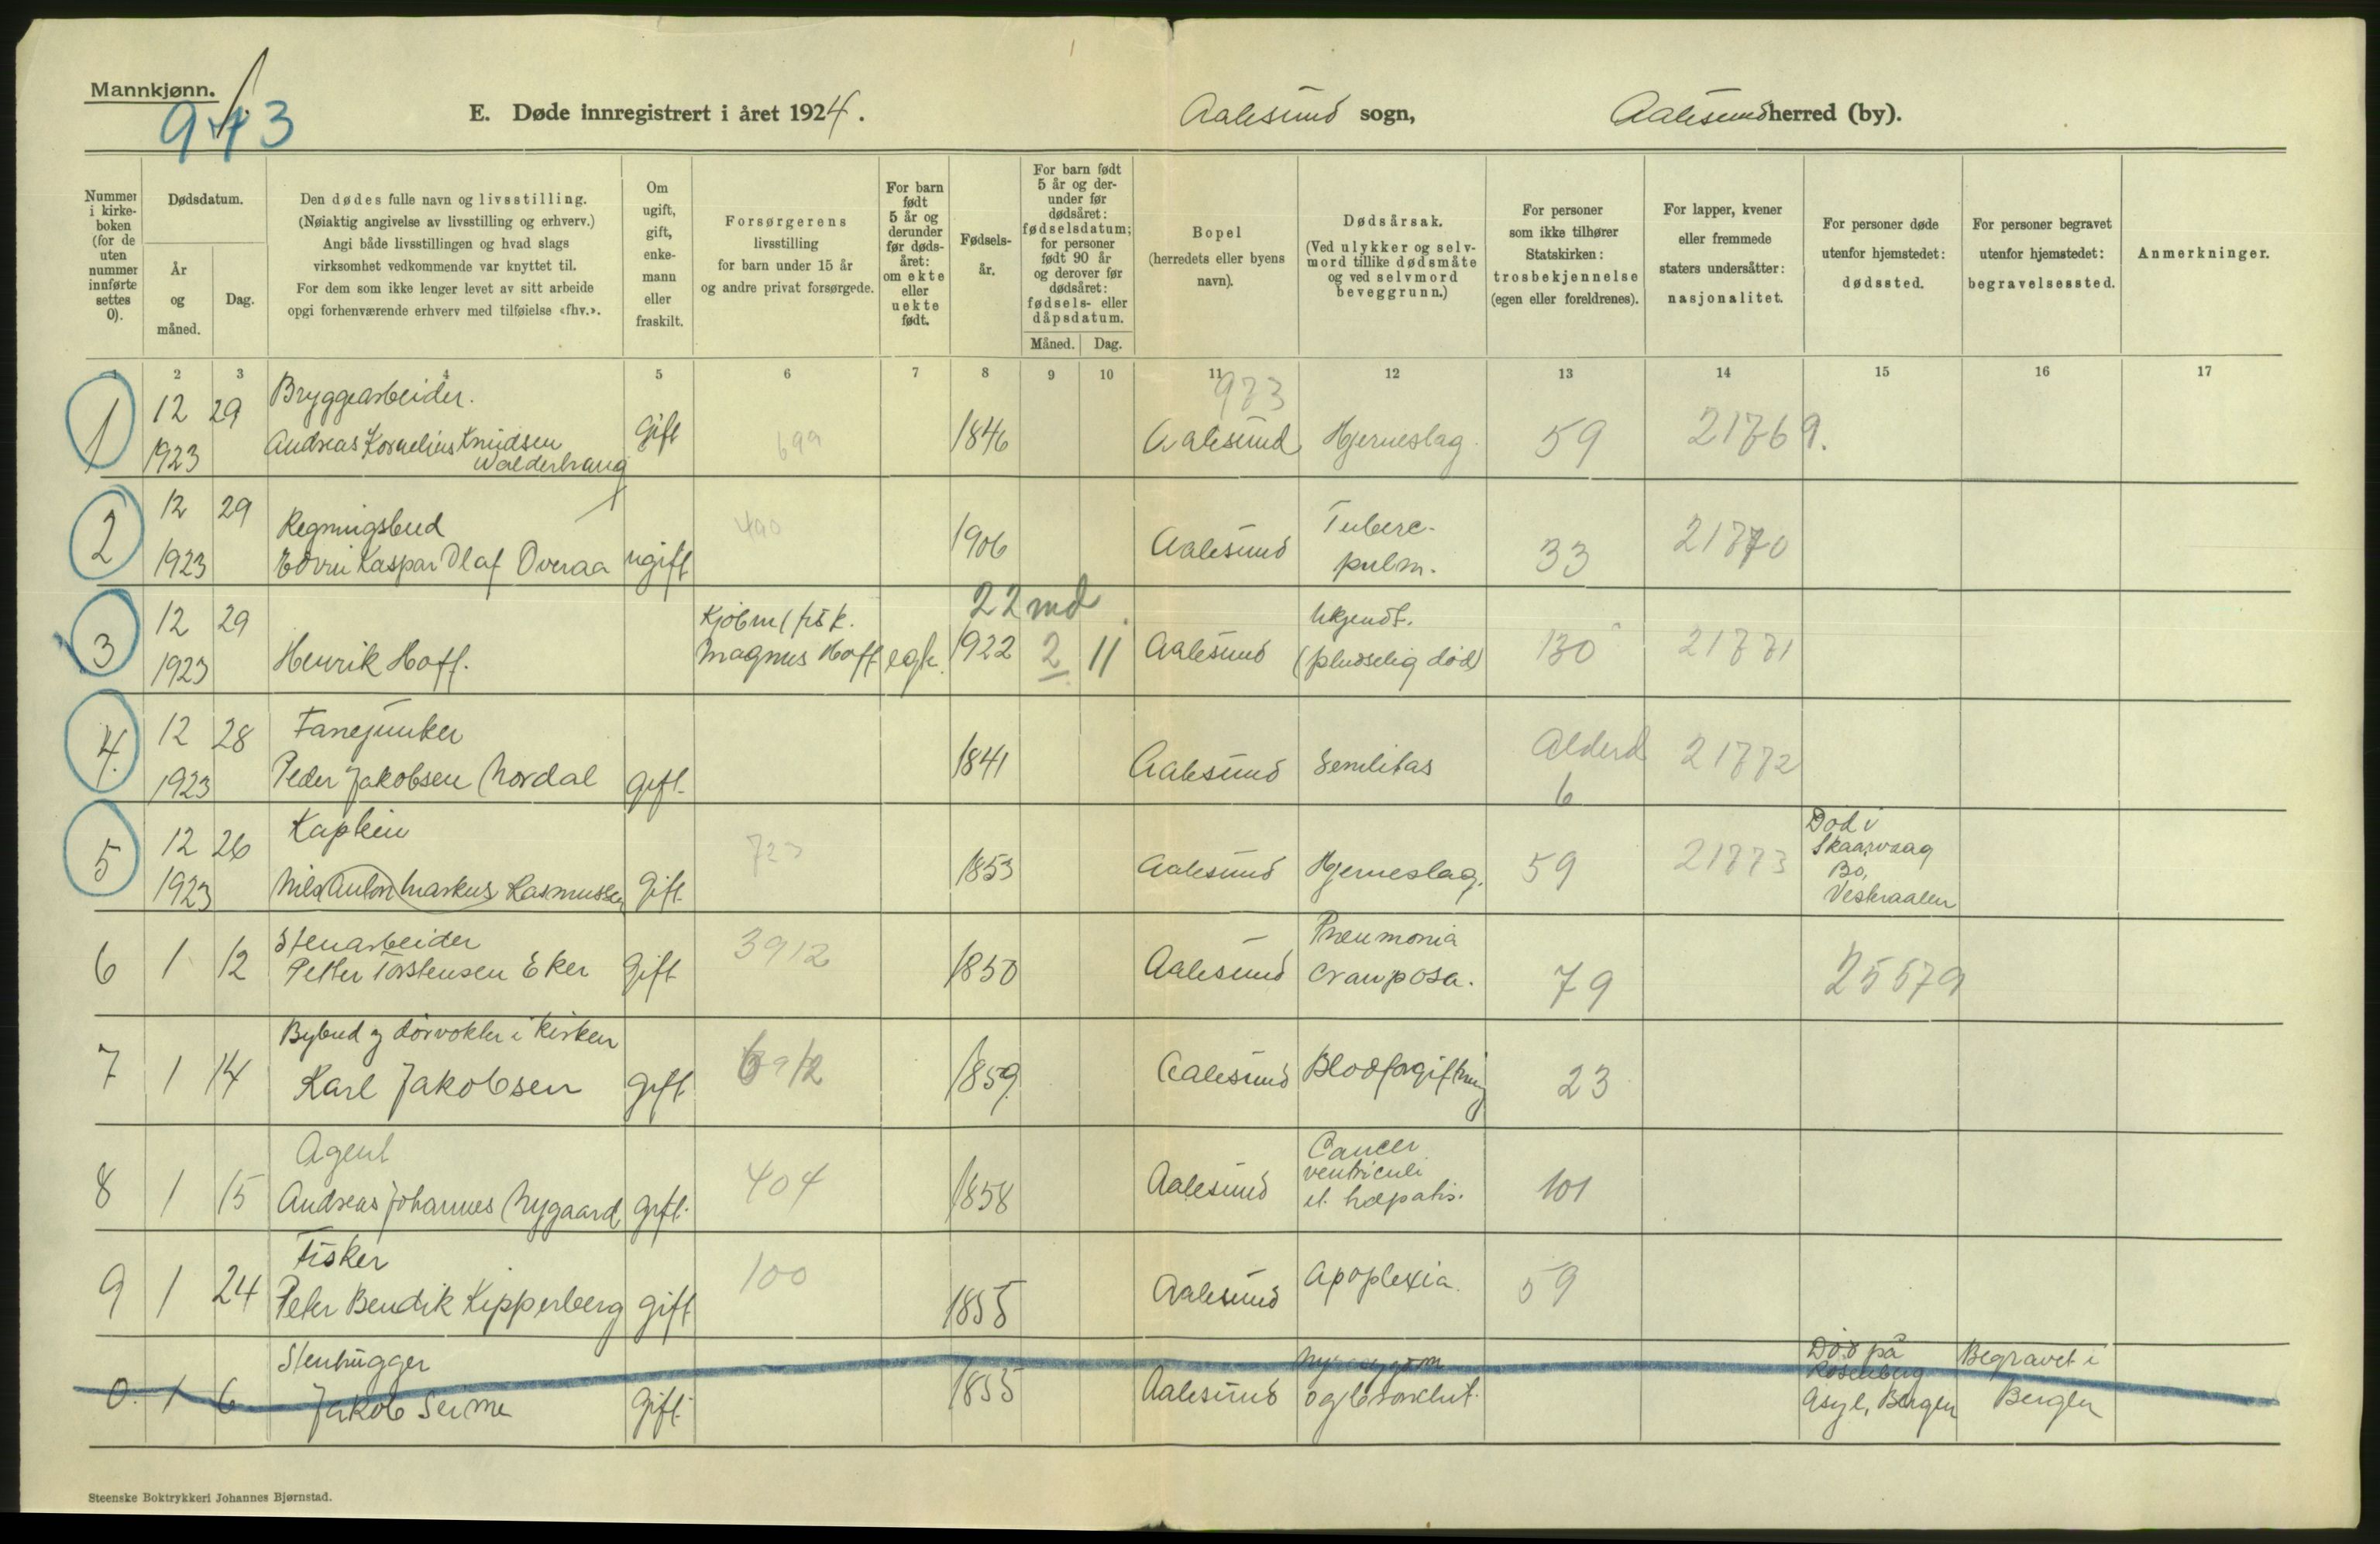 Mannkjønn.
943
E. Døde innregistrert i året 1924.
Aalesund sogn,
Aalesund herred (by).
Nummer i kirkeboken (for de uten nummer innførte settes 0).
Dødsdatum.
År og måned.
Dag.
Den dødes fulle navn og livsstilling.
(Nøiaktig angivelse av livsstilling og erhverv.)
Angi både livsstillingen og hvad slags
virksomhet vedkommende var knyttet til.
For dem som ikke lenger levet av sitt arbeide
opgi forhenværende erhverv med tilføielse «fhv.».
Om ugift, gift, enkemann eller fraskilt.
Forsørgerens
livsstilling
for barn under 15 år
og andre privat forsørgede.
For barn født 5 år og derunder før dødsåret: om ekte eller uekte født.
Fødselsår.
For barn født 5 år og derunder før dødsåret: fødselsdatum; for personer født 90 år og derover før dødsåret: fødsels- eller dåpsdatum.
Måned. Dag.
Bopel
(herredets eller byens
navn).
Dødsårsak.
(Ved ulykker og selvmord tillike dødsmåte og ved selvmord beveggrunn.)
For personer
som ikke tilhører
Statskirken:
trosbekjennelse
(egen eller foreldrenes).
For lapper, kvener
eller fremmede
staters undersåtter:
nasjonalitet.
For personer døde
utenfor hjemstedet:
dødssted.
For personer begravet
utenfor hjemstedet:
begravelsessted.
Anmerkninger.
1 2 3 4 5 6 7 8 9 10 11 12 13 14 15 16 17
973
1 12 29 Bryggearbeider.
1923 Andreas Kornelius Knudsen Walderhaug Gift 699 1846 Aalesund Hjerneslag. 59 21769.
2 12 29 Regningsbud Tuberc.
1923 Kaspar Olaf Overaa ugift 490 1906 Aalesund pulm. 33 21770
3 12 29 22 md. Ukjendt.
1923 Henrik Hoff. Magnus Hoff egte. 1922 2 11 Aalesund (pludselig død) 130 21771
4. 12 28 Fanejunker Alderd
1923 Peder Jakobsen Nordal gift. 1841 Aalesund Senilitas 6 21772
5 12 26 Kaptein 723
1923 Nils Anton Markus Rasmussen Gift. 1853 Aalesund Hjerneslag. 59 21773 Død i Skaarvaag Bø, Vesteraalen
6 1 12 Stenarbeider Pneumonia
Petter Torstensen Eker Gift 3912 1850 Aalesund crouposa. 79 25579
7 1 14 Bybud og dørvokter i kirken
Karl Jakobsen gift 1859. Aalesund Blodforgiftning 23
8 1 15 Agent Cancer
Andreas Johannes Nygaard gift. 404 1858 Aalesund ventriculi et hepatis. 101
9 1 24 Fisker
Peter Bendik Kipperberg gift 100 1855 Aalesund Apoplexia. 59
0. 1 6 Stenhugger
Jakob Seime Gift. 1855 Aalesund Nyresygdom og Død på Rosenberg Asyl, Bergen Begravet i Bergen
Steenske Boktrykkeri Johannes Bjørnstad.